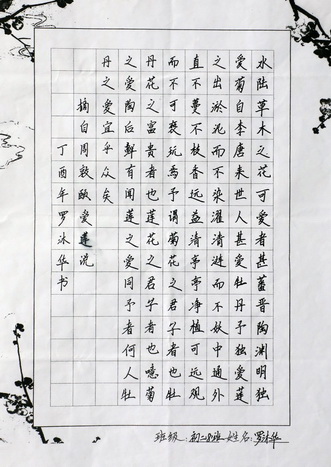 水陆草木之花可爱者甚蕃晋陶渊明独
爱菊自李唐来世人甚爱牡丹予独爱莲
之出淤泥而不染濯清涟而不妖中通外
直不蔓不枝香远益清亭亭净植可远观
而不可亵玩焉予谓菊花之君子者也牡
丹花之富贵者也莲花之君子者也噫菊
之爱陶后鲜有闻也莲之爱同予者何人牡
丹之爱宜乎众矣
摘自周敦颐爱莲说
丁酉年罗沐华书
班级:初二8班 姓名:罗沐华